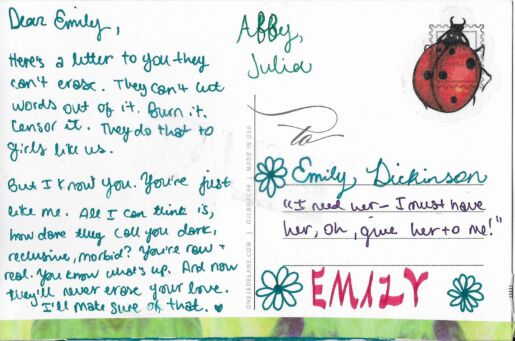 Dear Emily,
Here's a letter to you they
can't erase. They can't cut
words out of it. Burn it.
Censor it. They do that to
girls like us.
But I know you. You're just
like me. All I can think is,
how dare they call you dark,
reclusive, morbid? You're raw +
real. You know what's up. And now
they'll never erase your love.
I'll make sure of that.
Abby,
Julia
To
Emily Dickinson
"I need her – I must have
her, Oh, give her to me!"
EMILY
ONEJADELANE.COM | OILNPCH6 | MADE IN USA